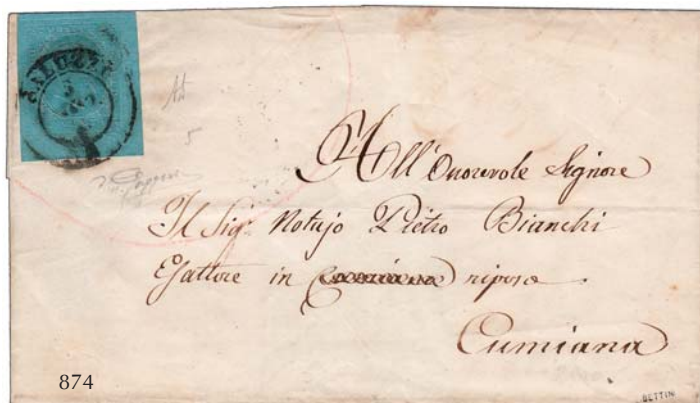 SALUZZO
5
All' Onorevole Signore
Il Sig.r Notajo Pietro Bianchi
Esattore in riposo
Cumiana
874
BETTIN